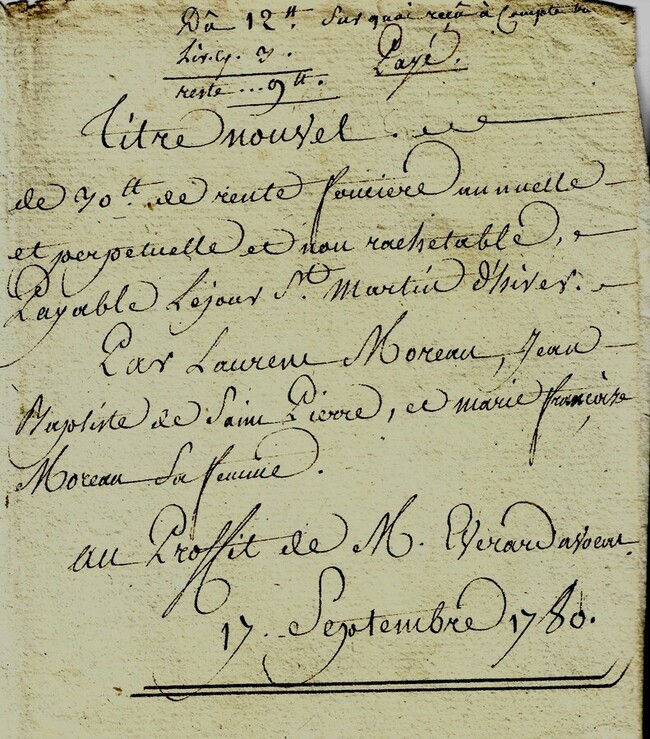 Dû 12₶ Sur quoi reçû à Compte
3.
Payé.
reste ... 9₶.
Titre nouvel
de 30₶ de rente fonciere annuelle
et perpetuelle et non rachetable,
Payable Lejour St. Martin d'hiver.
Par Laurent Moreau, Jean
Baptiste de Saint Pierre, et marie françoise
Moreau Sa femme.
au Proffit de M. Everard avocat.
17. Septembre 1780.